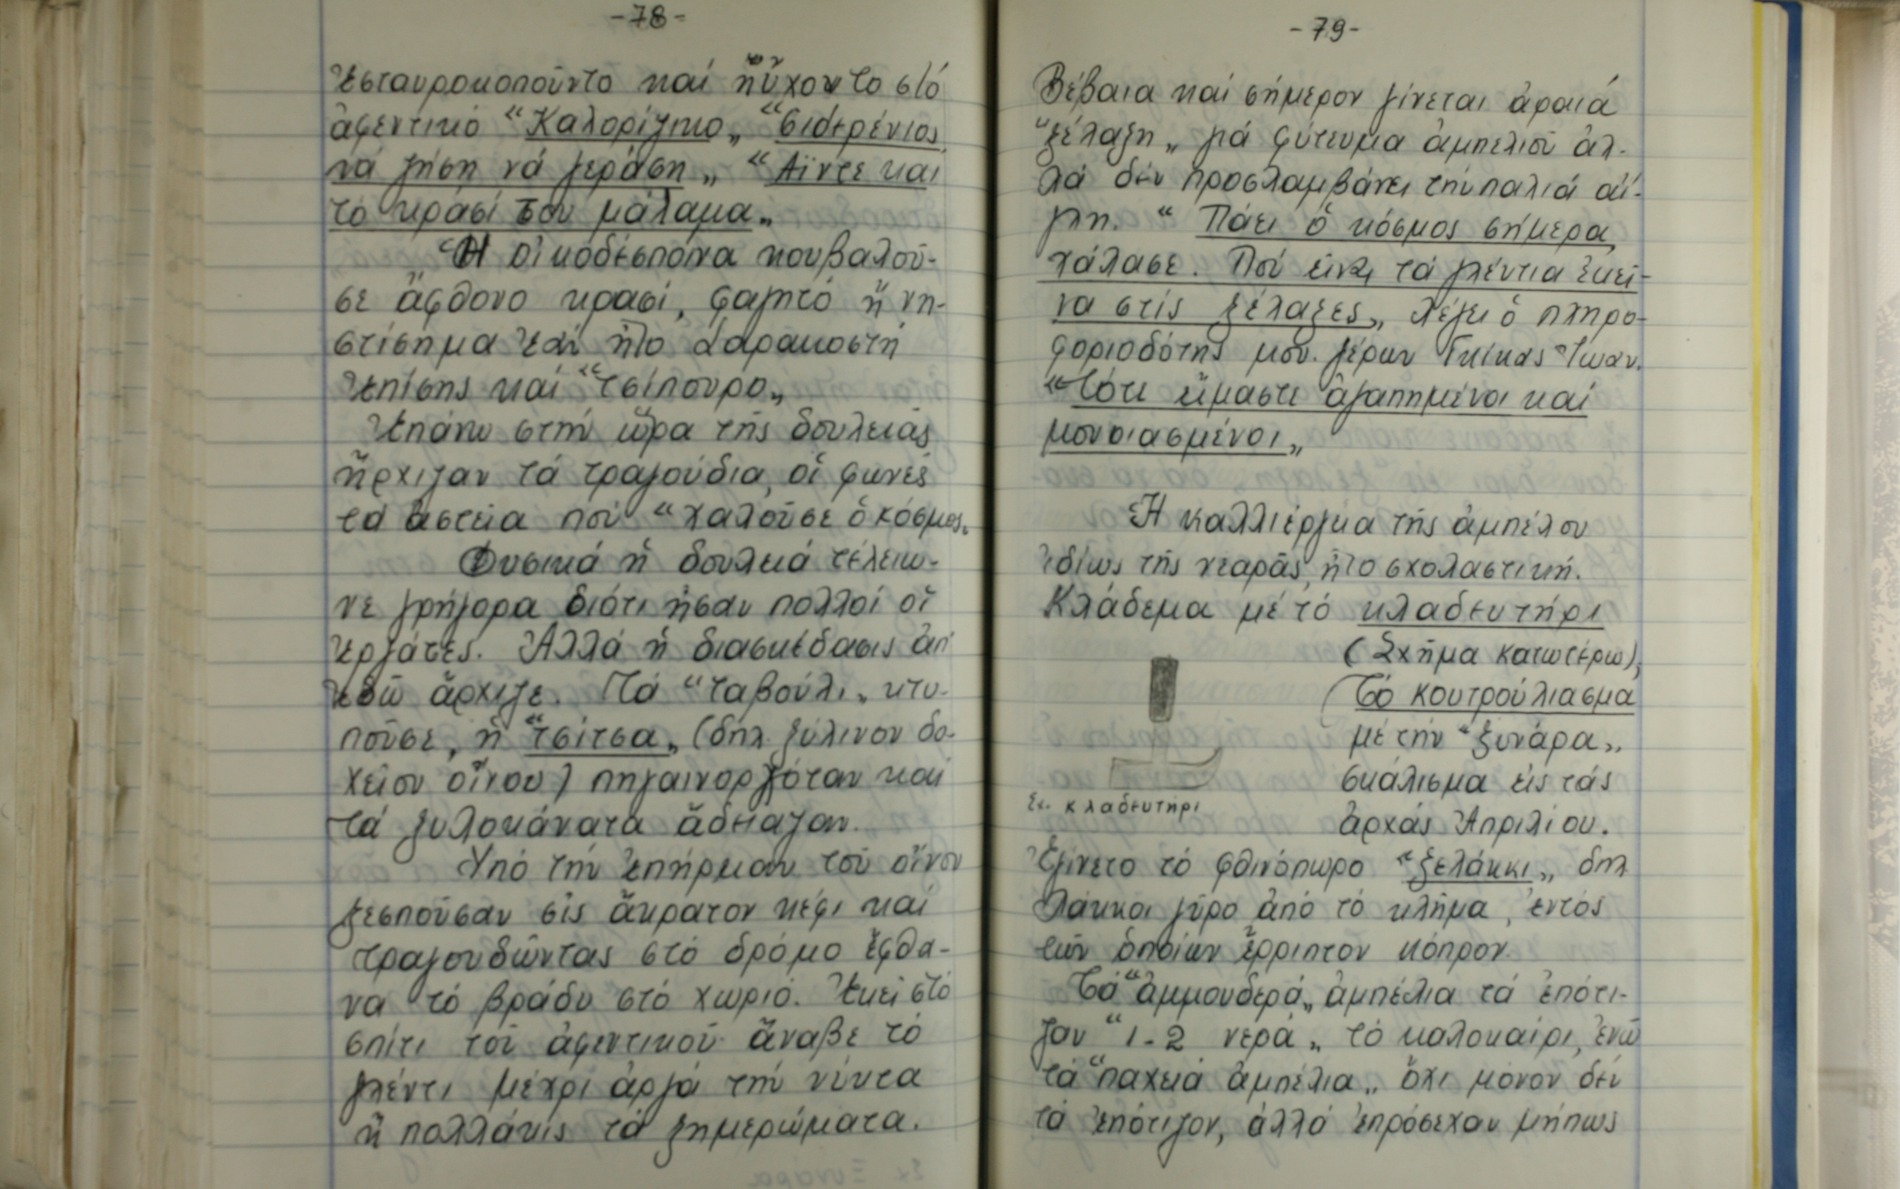 -78-
ἐσταυροκοποῦντο καί ηὔχοντο στό
ἀφεντικό "Καλορίζικο„ "σιδερένιος
νά ζήση νά γεράση„ "Αϊντε και
τό κρασί σου μάλαμα„
Ἡ οἰκοδέσποινα κουβαλοῦ-
σε ἄφθονο κρασί, φαγητό ἤ νη-
στίσημα ἐάν ἦτο Σαρακοστή
ἐπίσης καί "τσίπουρο„
Ἐπάνω στήν ὥρα τῆς δουλειάς
ἤρχιζαν τά τραγούδια, οἱ φωνές
τά ἀστεία πού "χαλοῦσε ὁ κόσμος„
Φυσικά ἡ δουλειά τέλειω-
νε γρήγορα διότι ἦσαν πολλοί οἱ
ἐργάτες. Ἀλλά ἡ διασκέδασις ἀπ'
ἐδῶ ἄρχιζε. Τό "ταβούλι„ κτυ-
ποῦσε, ἡ "τσίτσα„ (δηλ ξύλινον δο-
χεῖον οἴνου) πηγαινοργόταν καί
τά ξυλοκάνατα ἄδειαζον.
Ὑπό τήν ἐπήρειαν τοῦ οἴνου
ξεσποῦσαν εἰς ἄκρατον κέφι καί
τραγουδῶντας στό δρόμο ἔφθα-
να τό βράδυ στό χωριό. Ἐκεῖ στό
σπίτι τοῦ ἀφεντικοῦ ἄναβε τό
γλέντι μέχρι ἀργά τήν νύντα
ἤ πολλάκις τά ξημερώματα.
-79-
Βέβαια καί σήμερον γίνεται ἀραιά
"ξέλαξη„ γιά φύτευμα ἀμπελιοῦ ἀλ-
λά δέν προσλαμβάνει τήν παλιά αἴ-
γλη. "Πάει ὁ κόσμος σήμερα,
χάλασε. Ποῦ εἶναι τά γλέντια ἐκεῖ-
να στίς ξέλαξες„ λέγει ὁ πληρο-
φοριοδότης μου γέρων Γκίκας Ἰωαν.
"Τότε εἴμαστε ἀγαπημένοι καί
μονοιασμένοι„
Ἡ καλλιέργεια τῆς ἀμπέλου
ἰδίως τῆς νεαρᾶς, ἦτο σχολαστική.
Κλάδεμα μέ τό κλαδευτήρι
(Σχῆμα κατωτέρω),
Τό κουτρούλιασμα
μέ τήν "ξυνάρα„
σκάλισμα εἰς τάς
ἀρχάς Ἀπριλίου.
Σχ. κλαδευτήρι
Ἐγίνετο τό φθινόπωρο "ξελάκκι„ δηλ
λάκκοι γῦρο ἀπό τό κλῆμα, ἐντός
τῶν ὁποίων ἔρριπτον κόπρον.
Τά "ἀμμουδερά„ ἀμπέλια τά ἐπότι-
ζον "1-2 νερά„ τό καλοκαίρι, ἐνῶ
τά "παχειά ἀμπέλια„ ὄχι μόνον δέν
τά ἐπότιζον, ἀλλά ἐπρόσεχαν μήπως